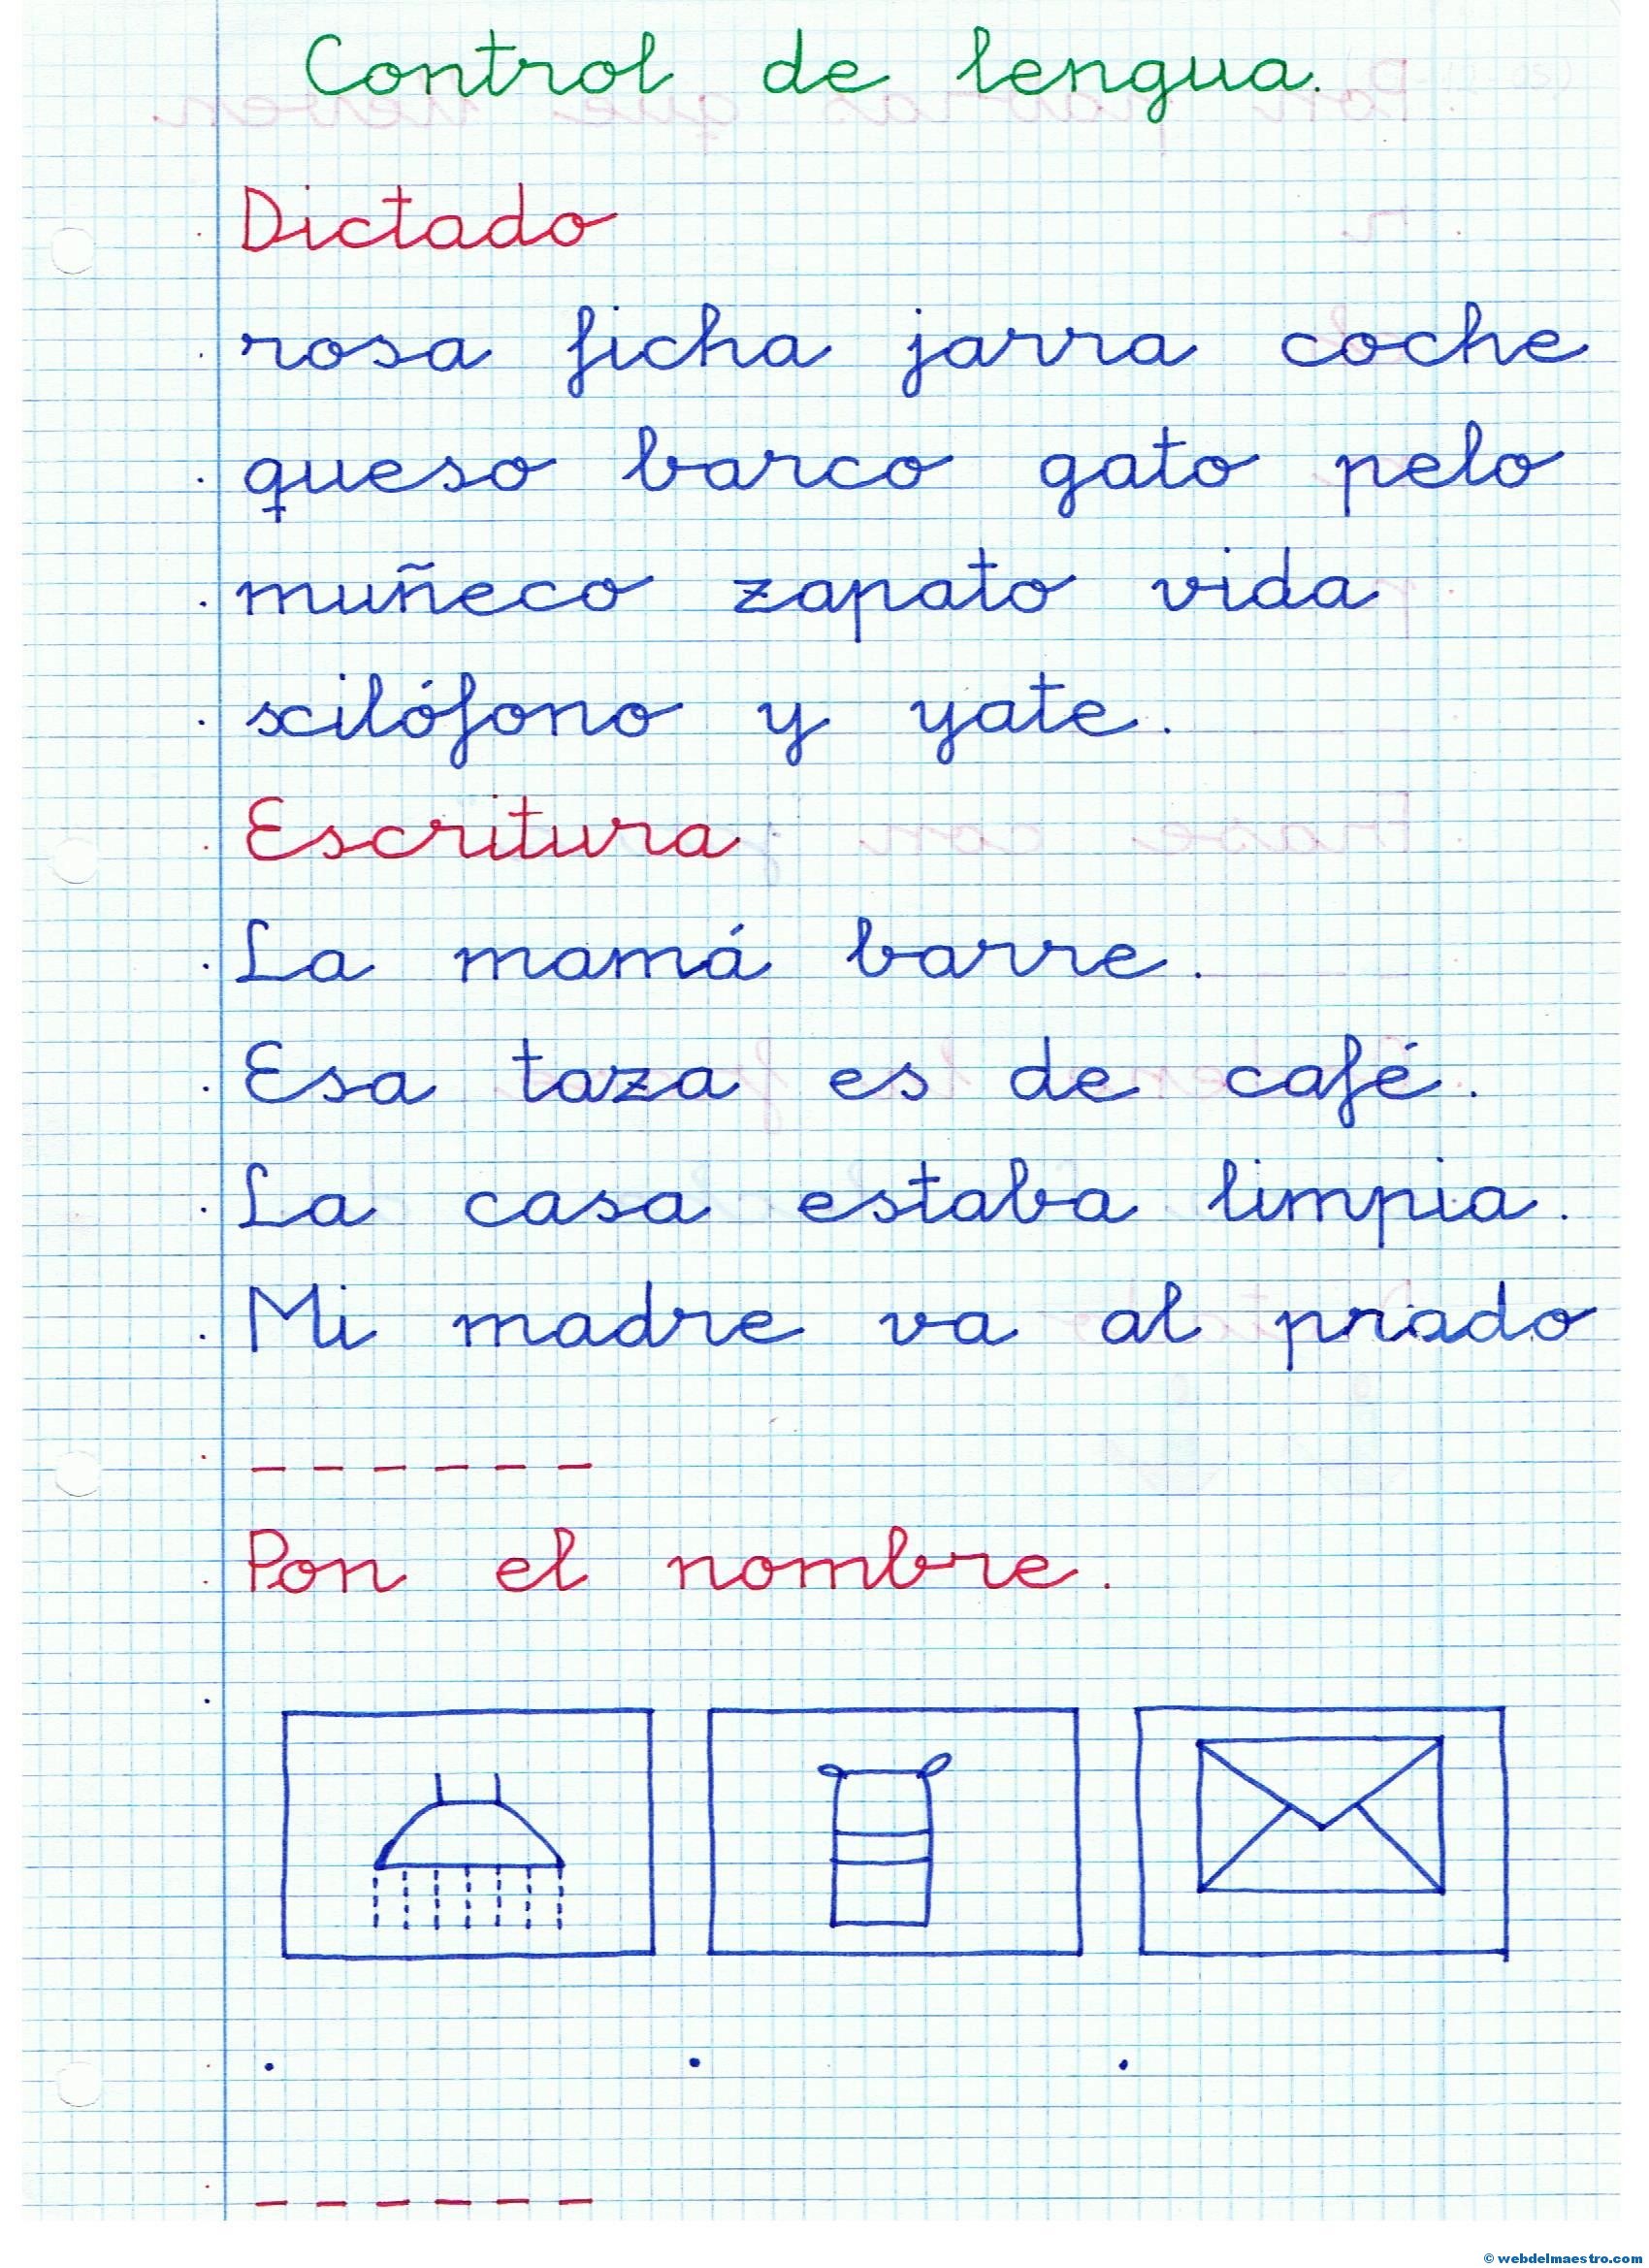 Control de lengua.
Dictado
rosa ficha jarra coche
queso barco gato pelo
muñeco zapato vida
xilófono y yate.
Escritura
La mamá barre.
Esa taza es de café.
La casa estaba limpia.
Mi madre va al prado
Pon el nombre.
© webdelmaestro.com